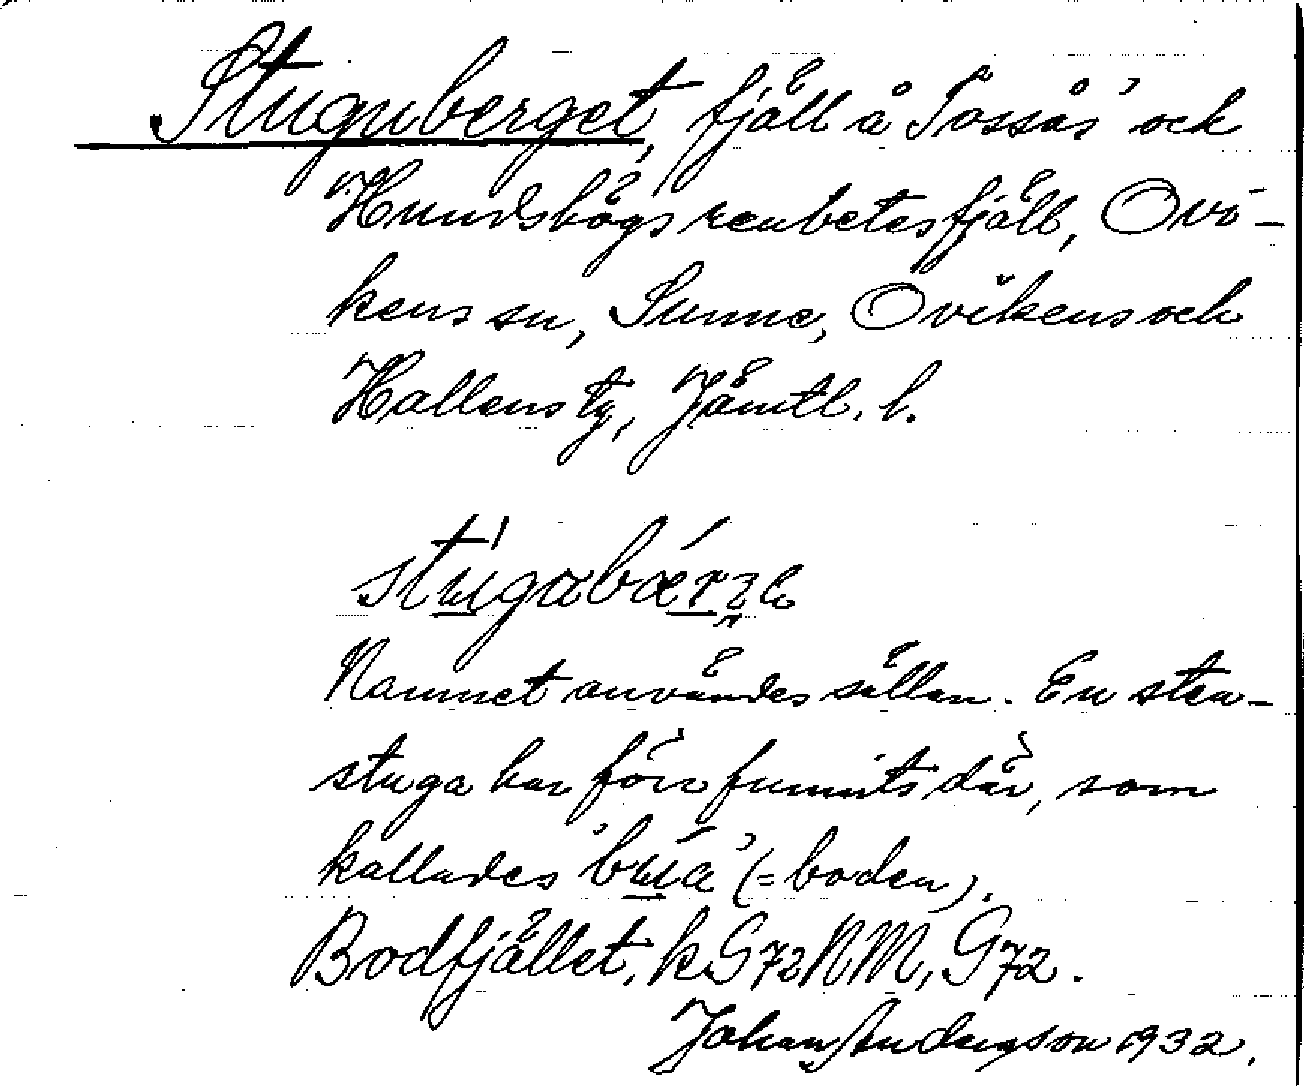 Stuguberget, fjäll å Tossås' och
Hundshögs renbetesfjäll, Ovi-
kens sn, Sunne, Ovikens och
Hallens tg, Jämtl. l.
Namnet användes sällan. En sten-
stuga har förr funnits där, som
kallades 'bua' (= boden).
Bodfjället, k G72 NM, G72.
Johan Andersson 1932.